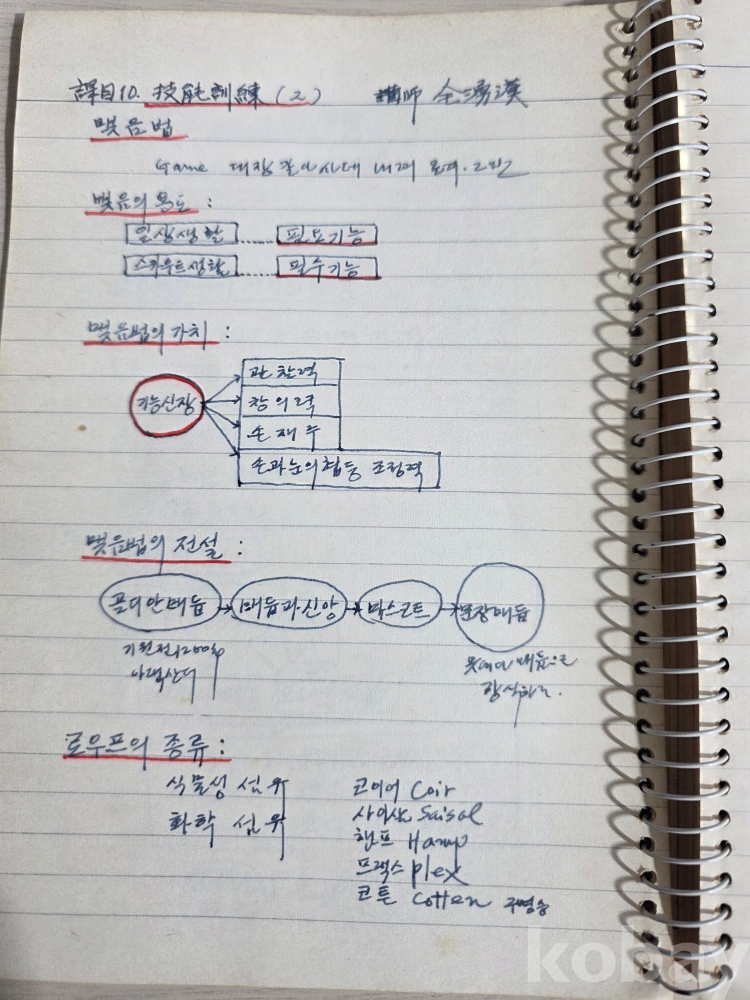 課目10. 技能訓練 (2) 講師 全湧漢
맺음법
Game 대장
맺음의 용도 :
일상생활 ........ 필요기능
스카우트생활 ........ 필수기능
맺음법의 가치 :
기능신장
관찰력
창의력
손재주
손과눈의 협동 조정력
맺음법의 전설 :
골디안매듭 → 매듭과신앙 → 마스코트 → 문장매듭
기원전1200년
매듭으로
장식하고.
로우프의 종류 :
식물성 섬유 코이어 Coir
화학 섬유 사이살 Saisal
햄프 Hamp
프렉스 plex
코튼 Cotten 구명승
kobay